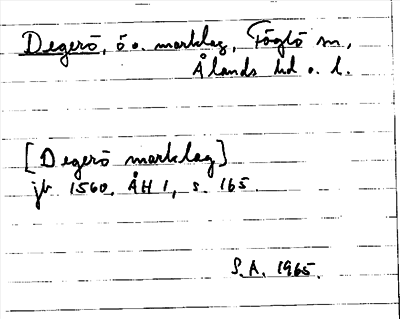 Degerö, ö o. marklag, Föglö sn,
Ålands hd o. l.
[Degerö marklag]
jb 1560. ÅH 1, s. 165.
S.A. 1965.